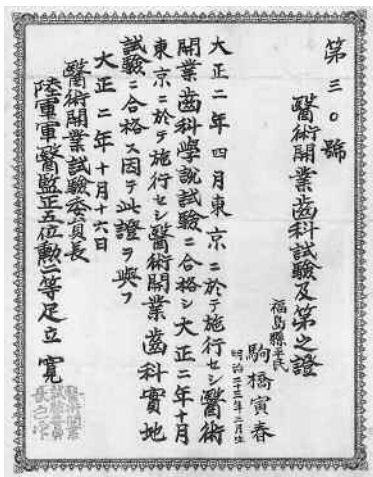 第三〇號
醫術開業齒科試驗及第之證
福島縣平民
駒橋寅春
明治二十三年二月生
大正二年四月東京ニ於テ施行セシ醫術
開業齒科學說試驗ニ合格シ大正二年十月
東京ニ於テ施行セシ醫術開業齒科實地
試驗ニ合格ス因テ此證ヲ與フ
大正二年十月十六日
醫術開業試驗委員長
陸軍軍醫監正五位勲二等足立寛